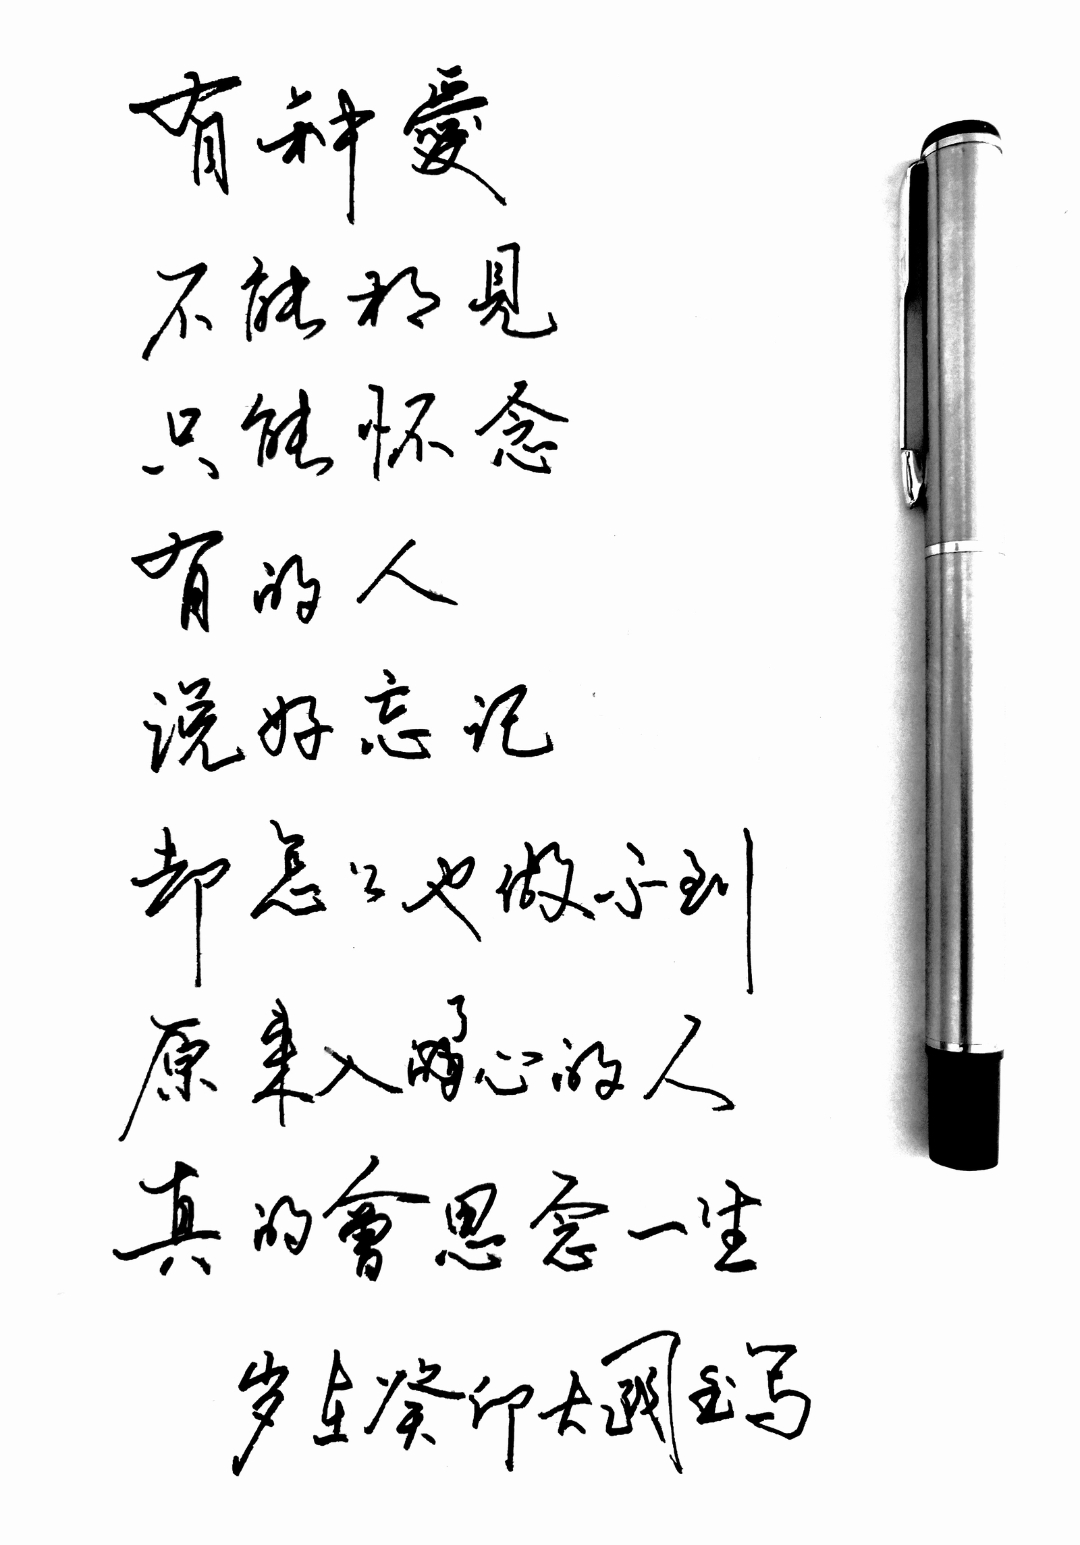 有种愛
不能相見
只能怀念
有的人
说好忘记
却怎么也做不到
原来入了心的人
真的會思念一生
岁在癸卯大國玉写